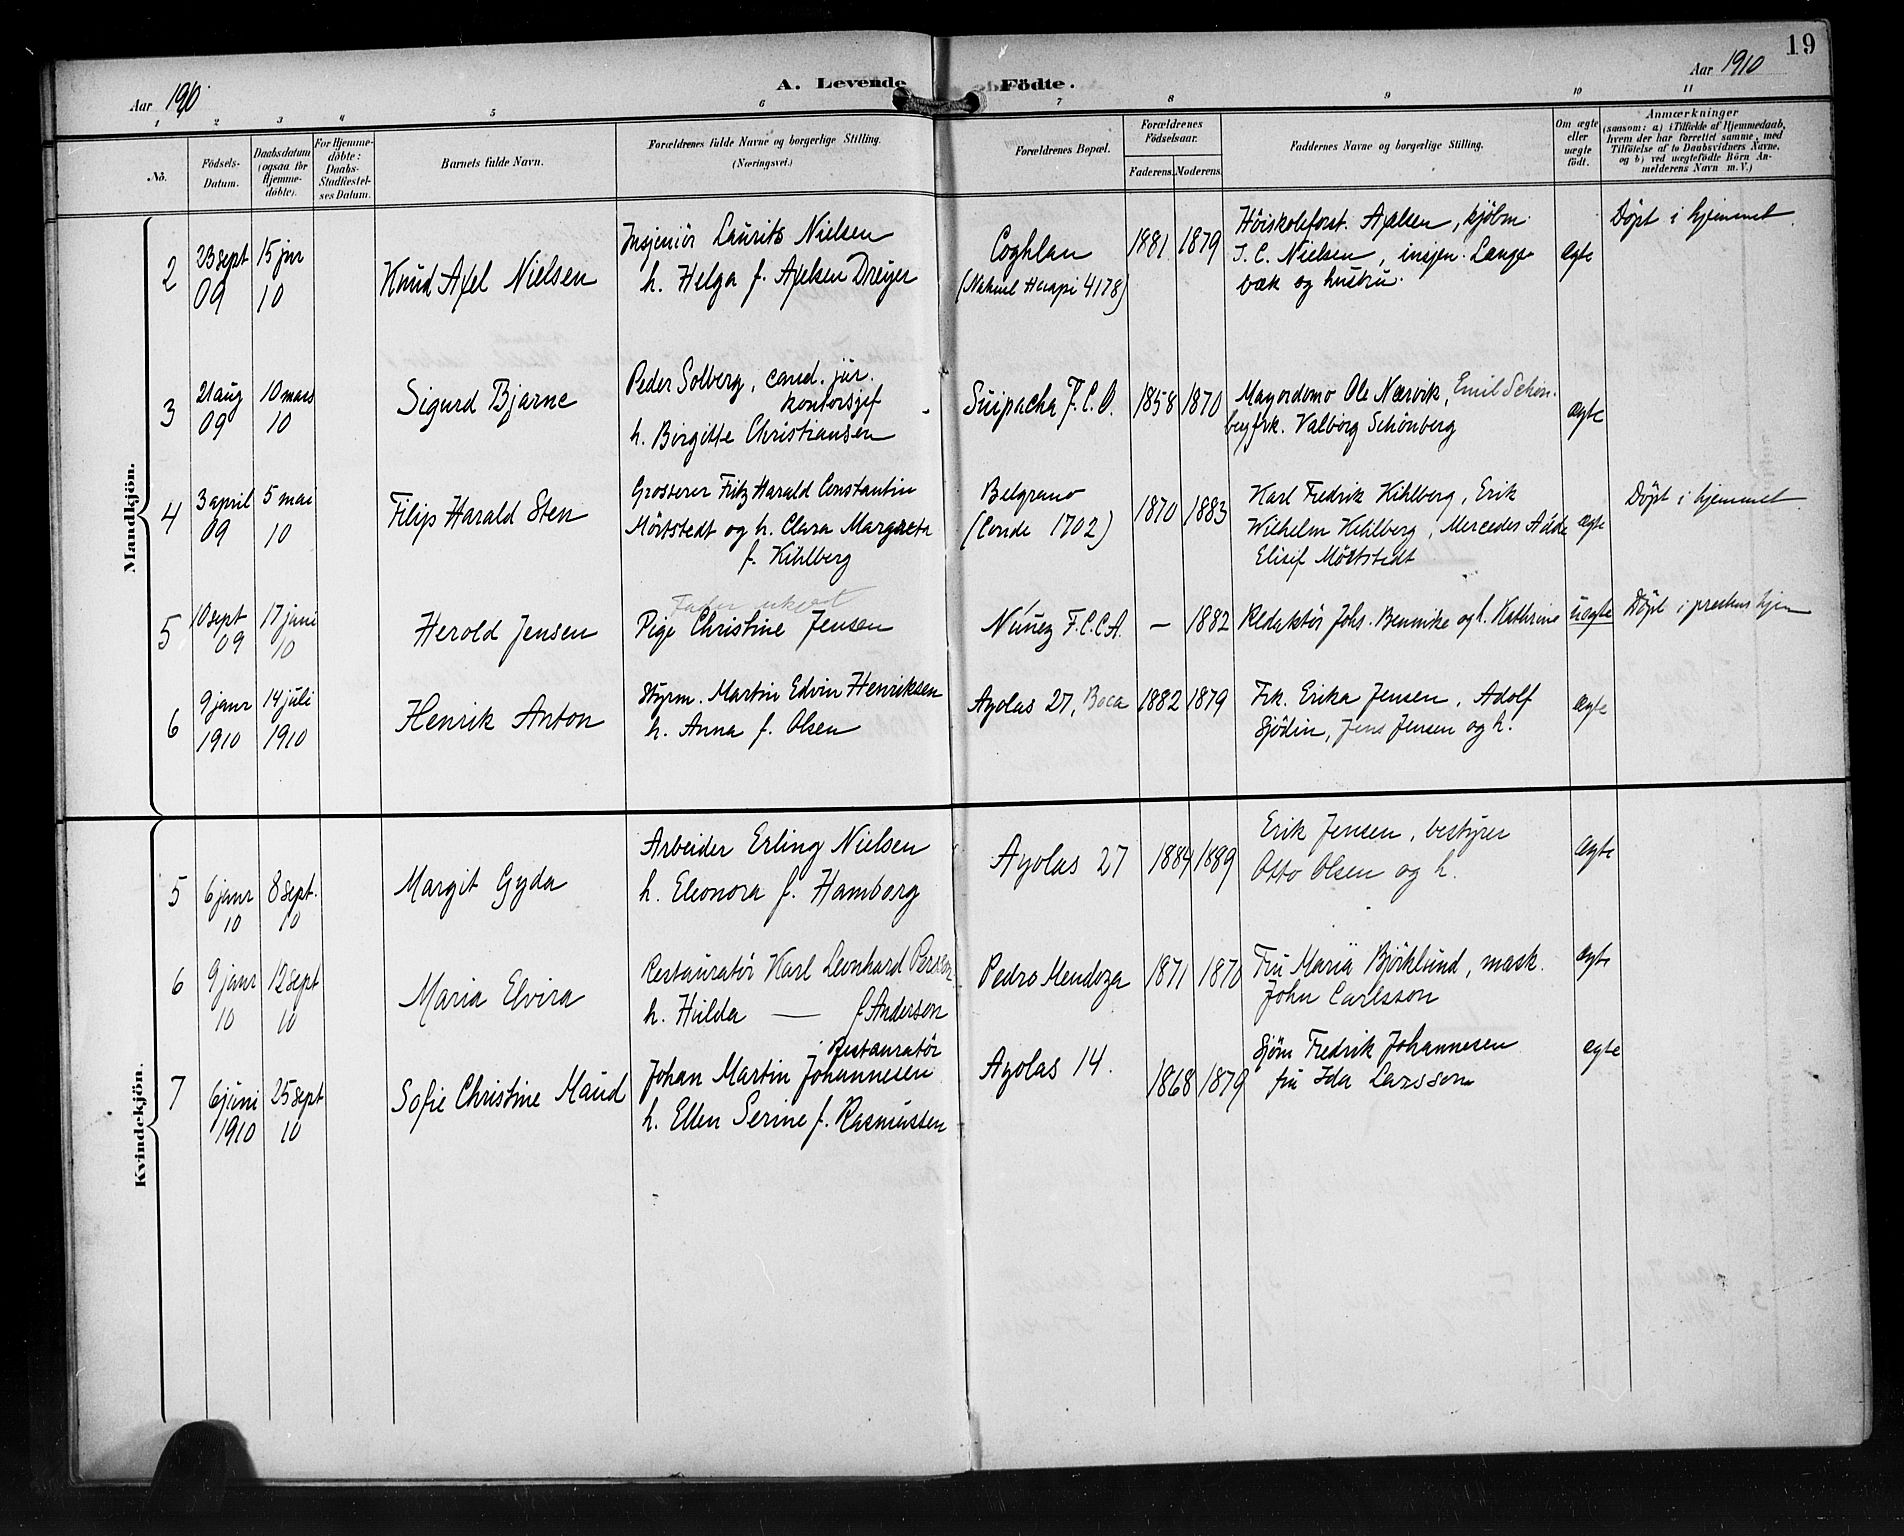 19
Aar 1910
A. Levende Födte.
Aar 1910
1 2 3 4 5 6 7 8 9 10 11
No.
Födsels-Datum.
Daabsdatum (ogsaa för Hjemme-döbte).
For Hjemme-döbte: Daabs-Stadfæstel-ses Datum.
Barnets fulde Navn.
Forældrenes fulde Navne og borgerlige Stilling.
(Næringsvei.)
Forældrenes Bopæl.
Forældrenes Födselsaar.
Faderens. Moderens.
Faddernes Navne og borgerlige Stilling.
Om ægte eller uægte födt.
Anmærkninger
(saasom: a) i Tilfælde af Hjemmedaab,
hvem der har forrettet samme, med
Tilföielse af to Daabsvidners Navne,
og b) ved uægtefödte Börn An-
melderens Navn m. V.)
Mandkjön.
2 23 sept 09 15 jan 10 Knud Axel Nielsen
Insjeniör Laurits Nielsen
h. Helga f. Axelsen Dreyer
Coghlan
(Nahuel Huapi 4178)
1881 1879
Höiskoleforst. Axelsen, kjöbm.
I. C. Nielsen, insjen. Lange-
bæk og hustru.
ægte
Döpt i hjemmet.
3 21 aug 09 10 mars 10 Sigurd Bjarne
Peder Solberg, cand. jur.
kontorsjef
h. Birgitte Christiansen
Suipacha F.C.O. 1858 1870
Mayordomo Ole Nærvik, Emil Schön-
berg frk. Valborg Schönberg
ægte
4 3 april 09 5 mai 10 Filip Harald Sten
Grosserer Fritz Harald Constantin
Mörtstedt og h. Clara Margareta
f. Kihlberg
Belgrano
(Conde 1702)
1870 1883
Karl Fredrik Kihlberg, Erik
Wilhelm Kihlberg, Mercedes
Elisif Mörtstedt
ægte
Döpt i hjemmet.
5 10 sept 09 17 juni 10 Herold Jensen
Fader ukjent
Pige Christine Jensen
Núñez F.C.C.A. — 1882
Redaktör Johs. Bennike og h. Kathrine
uægte
Döpt i prestens hjem
6 9 janr 1910 14 juli 1910 Henrik Anton
Styrm. Martin Edvin Henriksen
h. Anna f. Olsen
Ayolas 27, Boca 1882 1879
Frk. Erika Jensen, Adolf
Sjödin, Jens Jensen og h.
ægte
Kvindekjön.
5 6 janr 10 8 sept. 10 Margit Gyda
Arbeider Erling Nielsen
h. Eleonora f. Hamborg
Ayolas 27 1884 1889
Erik Jensen, bestyrer
Otto Olsen og h.
ægte
6 9 janr 10 12 sept 10 Maria Elvira
Restauratör Karl Leonhard Persson
h. Hulda — f. Anderson
Pedro Mendoza 1871 1870
Fru Maria Björklund, mask.
John Carlsson
ægte
7 6 juni 1910 25 sept 10 Sofie Christine Maud
Restauratör
Johan Martin Johannesen
h. Ellen Serine f. Rasmussen
Ayolas 14. 1868 1879
Sjöm Fredrik Johannesen
fru Ida Larsson
ægte